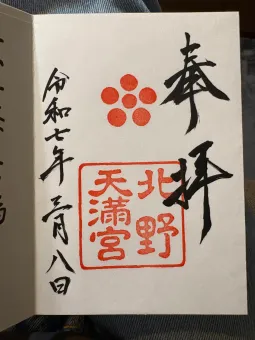 奉拝
北野
天満宮
令和七年三月八日